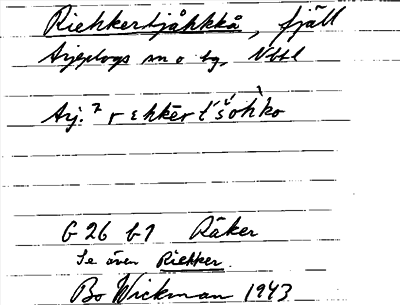 Riehkertjåhkkå, fjäll
Arjeplogs sn o tg, Nbtl
Arj. rɛhkērt'šoh̀ko
G 26 b1 Räker
Se även Riehker.
Bo Wickman 1943